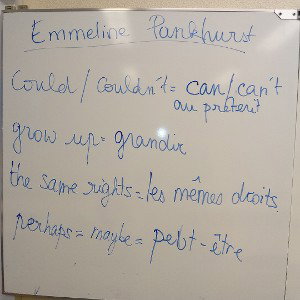 Emmeline Pankhurst
Could / Couldn't = can/can't
au prétérit
grow up = grandir
the same rights = les mêmes droits
perhaps = maybe = peut-être